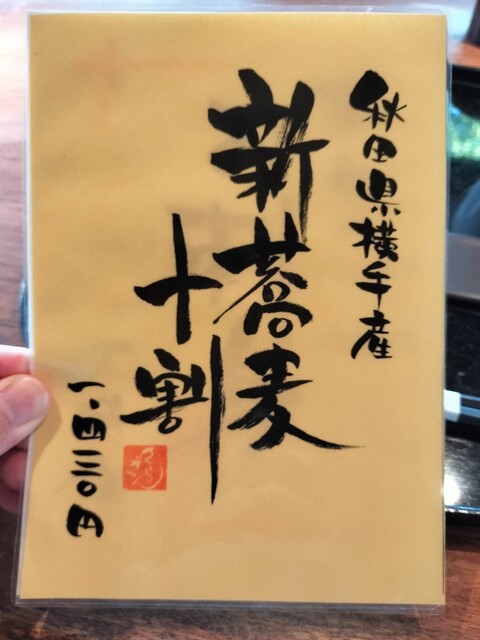 秋田県横手産
新蕎麦
十割
一、四三〇円